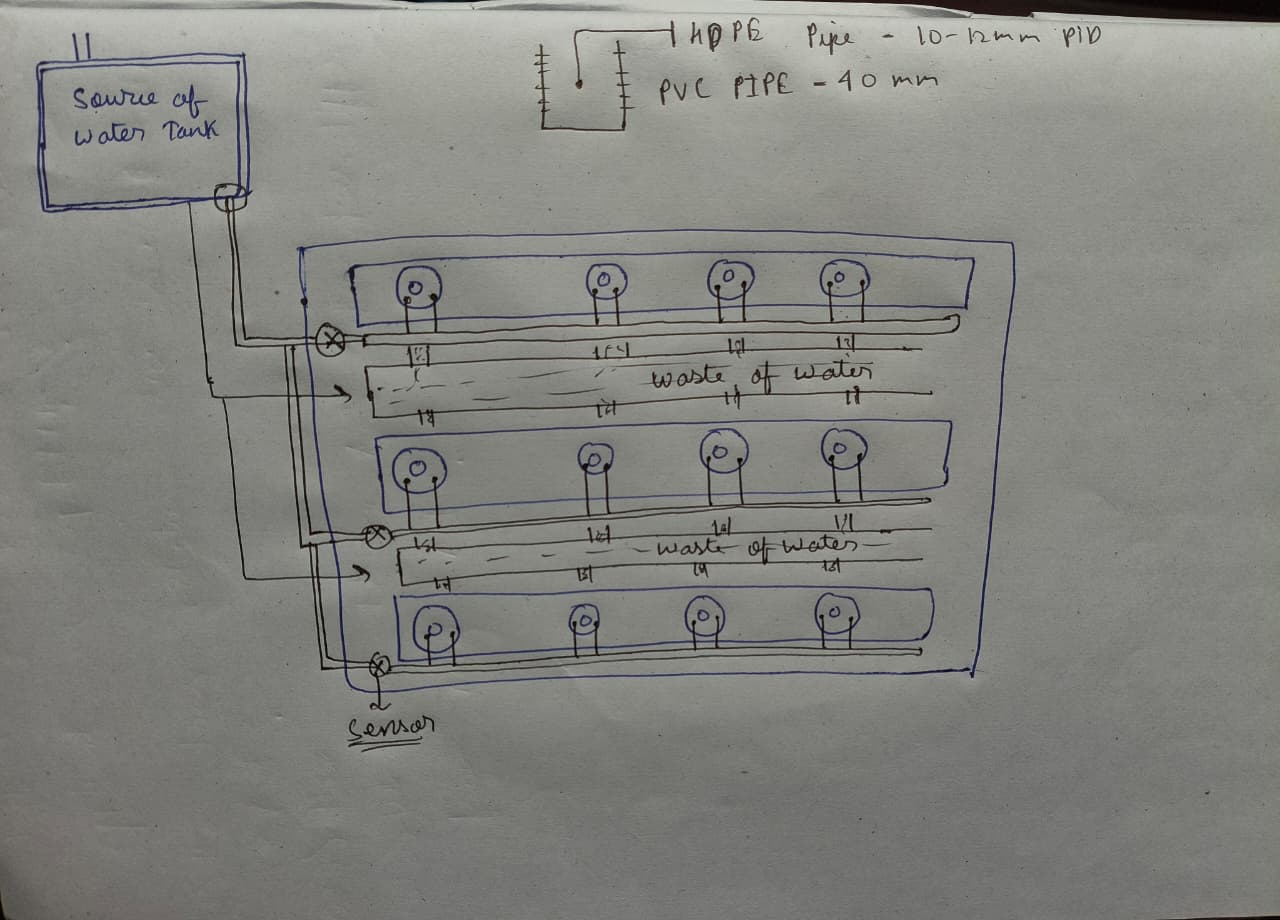 HDPE Pipe - 10-12mm PID
PVC PIPE - 40 mm
Source of
water Tank
waste of water
waste of water
Sensor